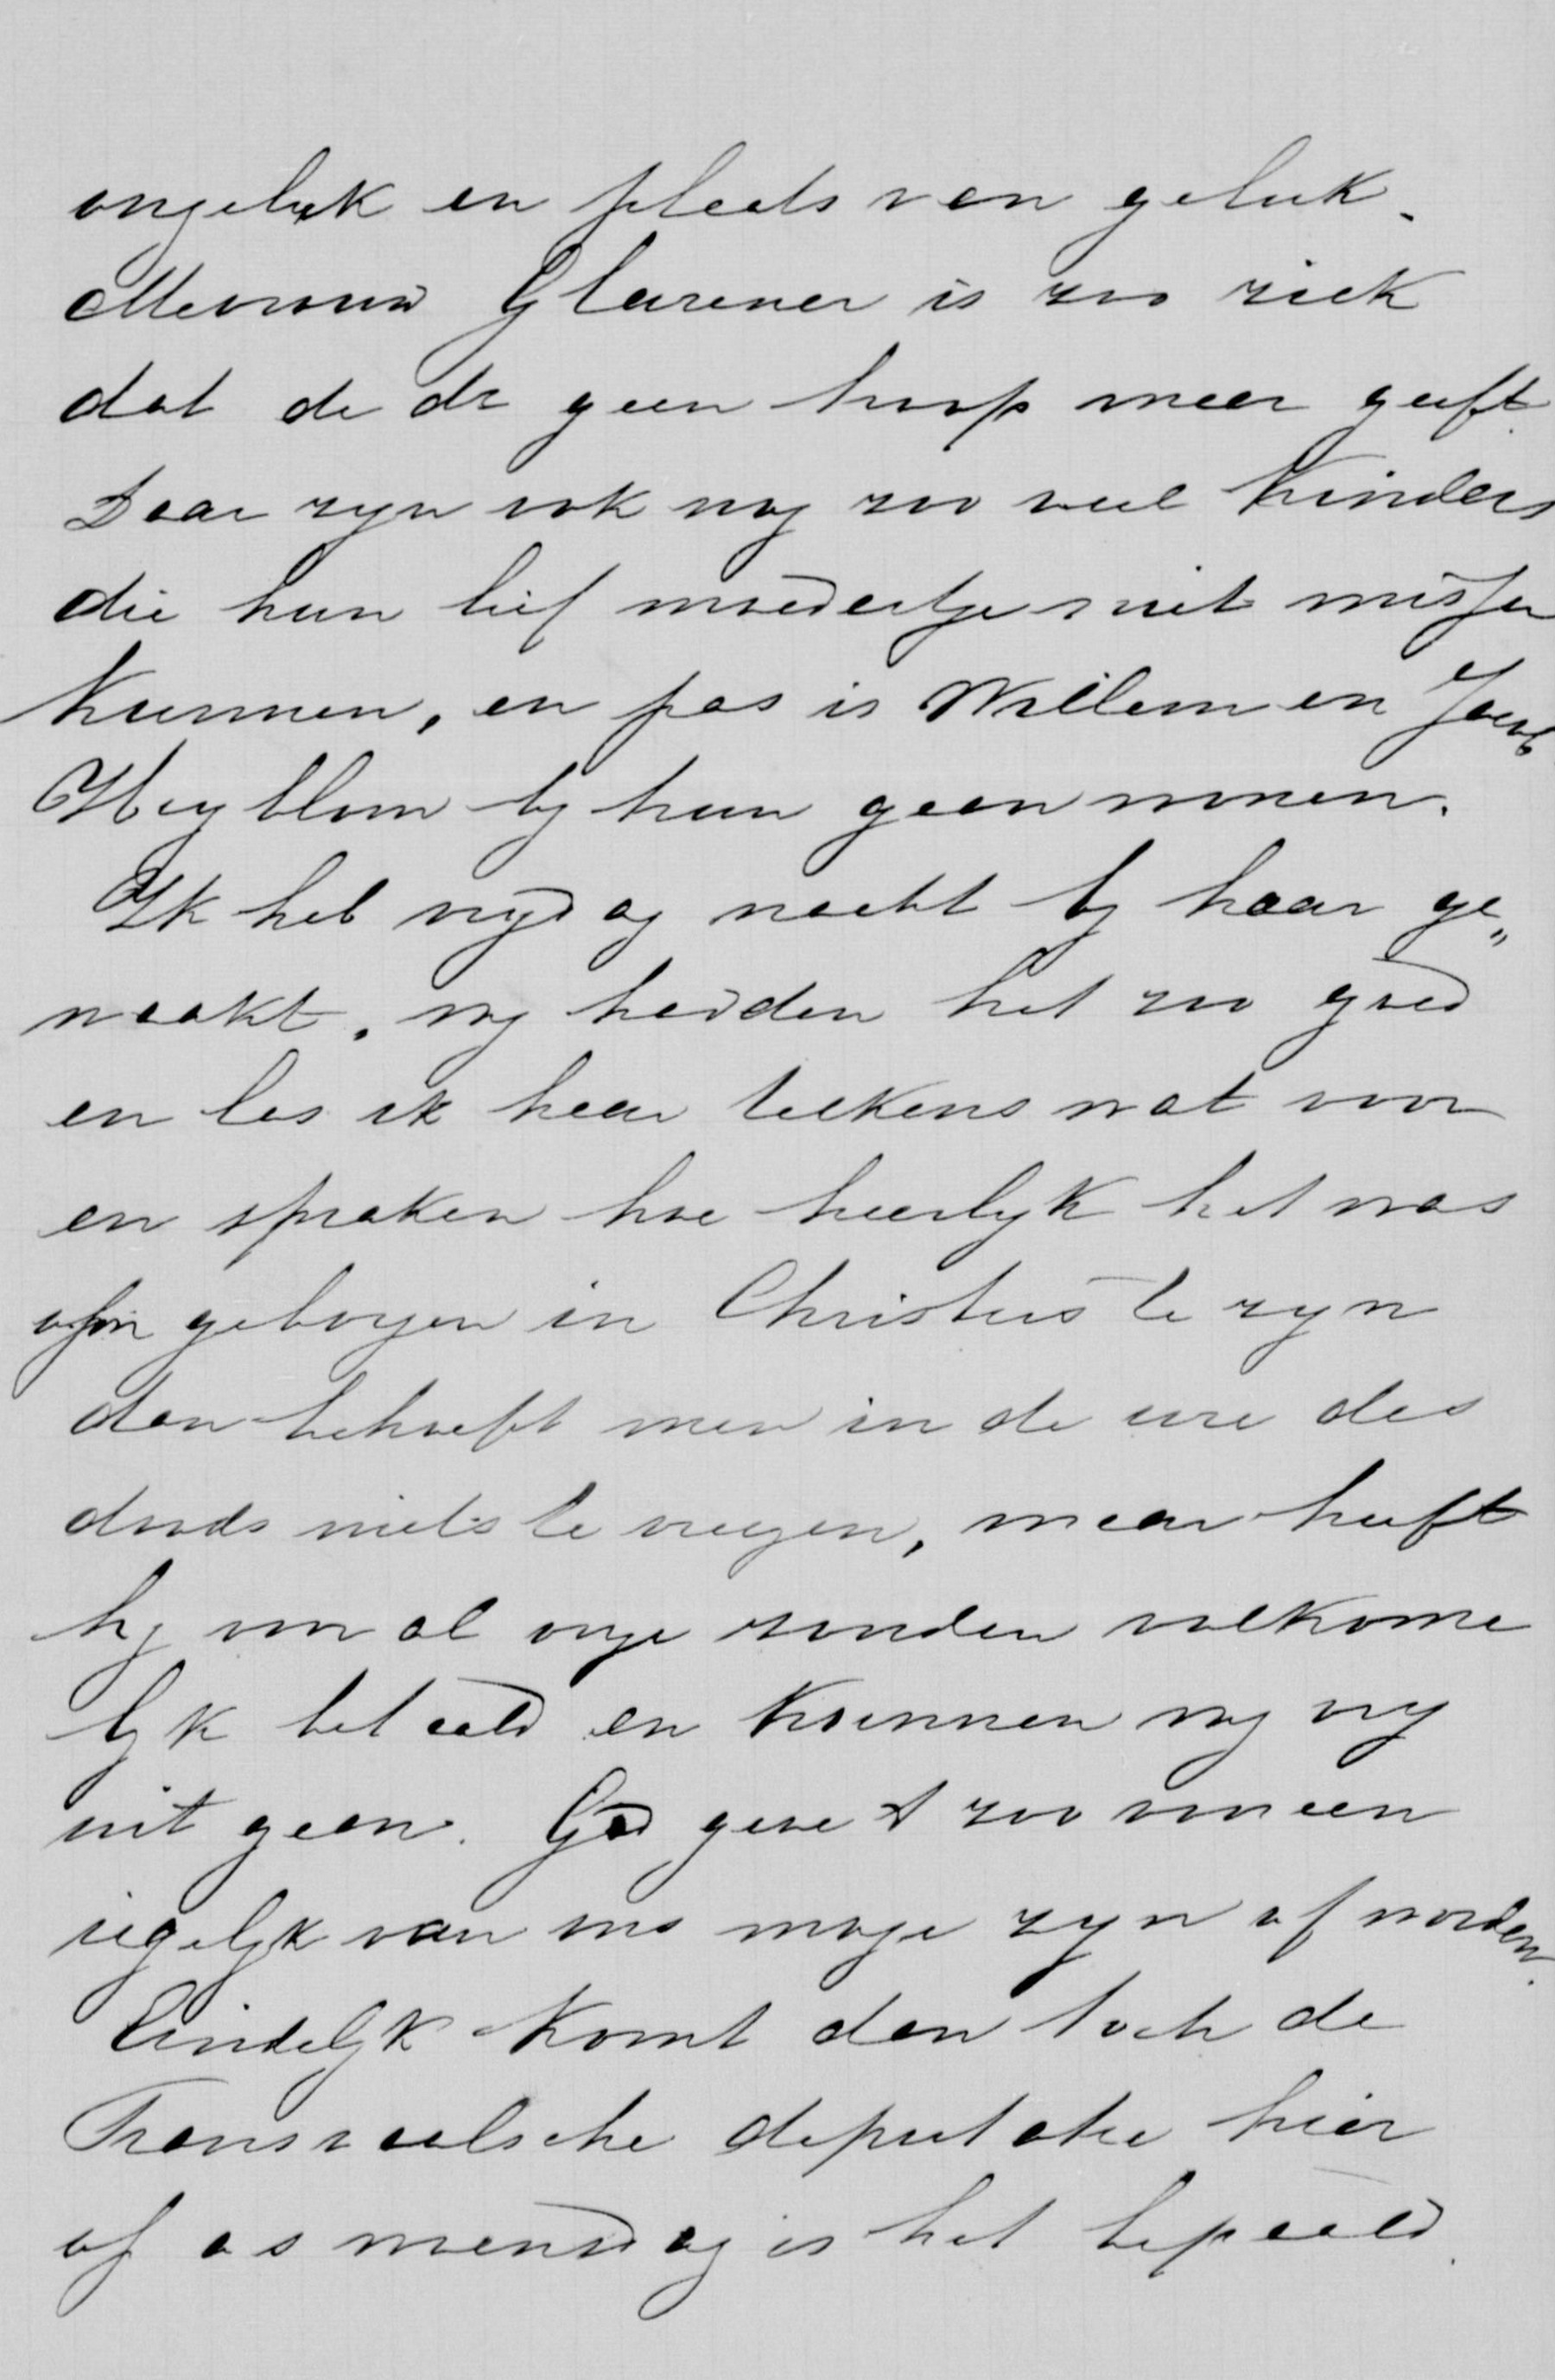 ongeluk en plaats van geluk.
Mevrouw Glarener is zoo ziek
dat de dr geen hoop meer geeft.
Daar zyn ook nog zoo veel kinders
die hun lief moedertje niet missen
kunnen, en pas is Willem en Jacob
Heyblom by hun gaan wonen.
Ik heb vrydag nacht by haar ge„
waakt. wy hadden het zoo goed
en las ik haar telkens wat voor
en spraken hoe heerlyk het was
om geborgen in Christus te zyn
dan behoeft men in de ure des
doods niets te vreezen, maar heeft
hy voor al onze zonden volkome
lyk betaald en kunnen wy vry
uit gaan. God geve t zoo voor een
iegelyk van ons moge zyn of worden.
Eindelyk komt dan toch de
Transvaalsche deputatie hier
of as woensdag is het bepaald.